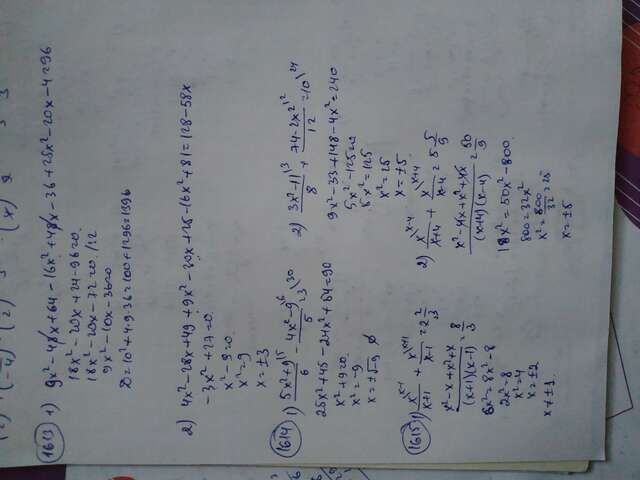 1613 1) 9x²-48x+64-16x²+48x-36+25x²-20x-4=96
18x²-20x+24-96=0
18x²-20x-72=0 /2
9x²-10x-36=0
D=10²+4·9·36=100+1296=1396
2) 4x²-28x+49+9x²-30x+25-16x²+81=128-58x
-3x²+27=0
x²-9=0
x²=9
x=±3
1614 1) 5x²+9\5/6 - 4x²-9\6/5 =3\30
25x²+45-24x²+54=90
x²+9=0
x²=-9
x=±√-9 ∅
2) 3x²-11\3/8 + 74-2x²\2/12 =10\24
9x²-33+148-4x²=240
5x²-125=0
5x²=125
x²=25
x=±5
1615 1) x\x-1/x+1 + x\x+1/x-1 =2 2/3
x²-x+x²+x/(x+1)(x-1) = 8/3
6x²=8x²-8
2x²=8
x²=4
x=±2
x≠±1
2) x\x-4/x+4 + x\x+4/x-4 =5 5/9
x²-4x+x²+4x/(x+4)(x-4) = 50/9
18x²=50x²-800
800=32x²
x²=800/32=25
x=±5